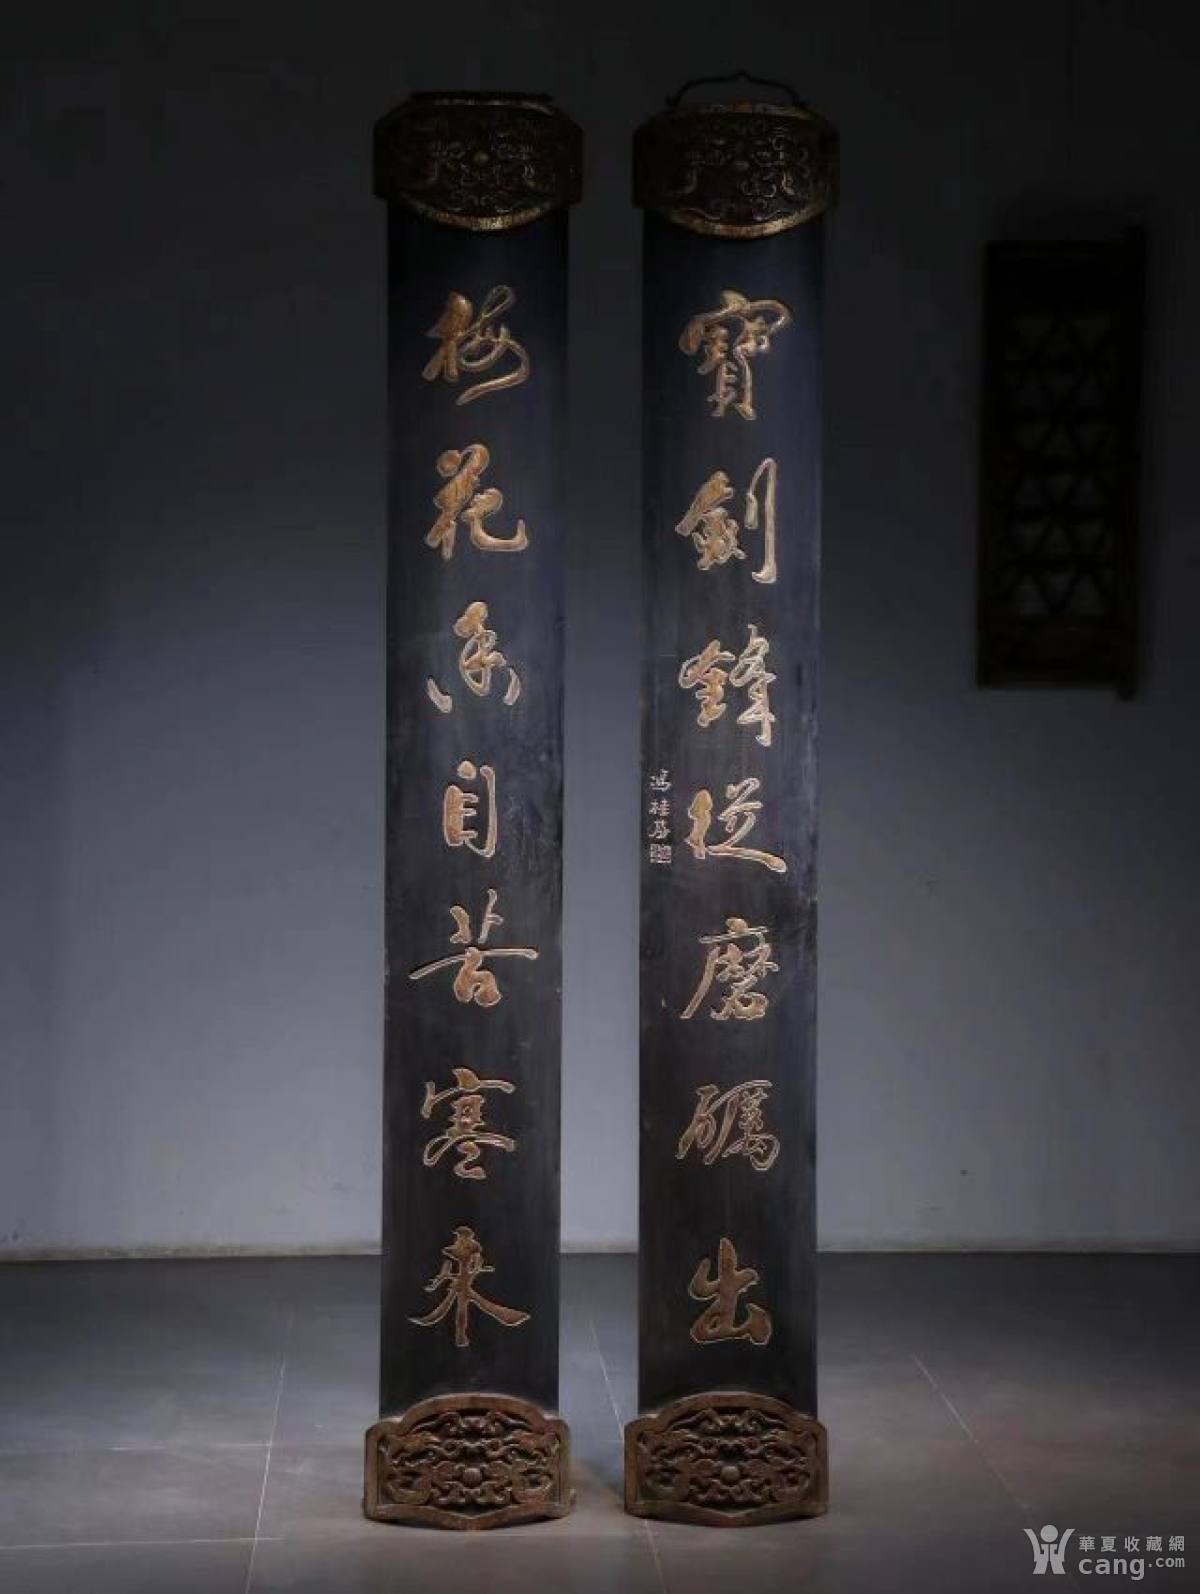 寶劍鋒從磨礪出
馮桂芬
梅花香自苦寒來
華夏收藏網
cang.com